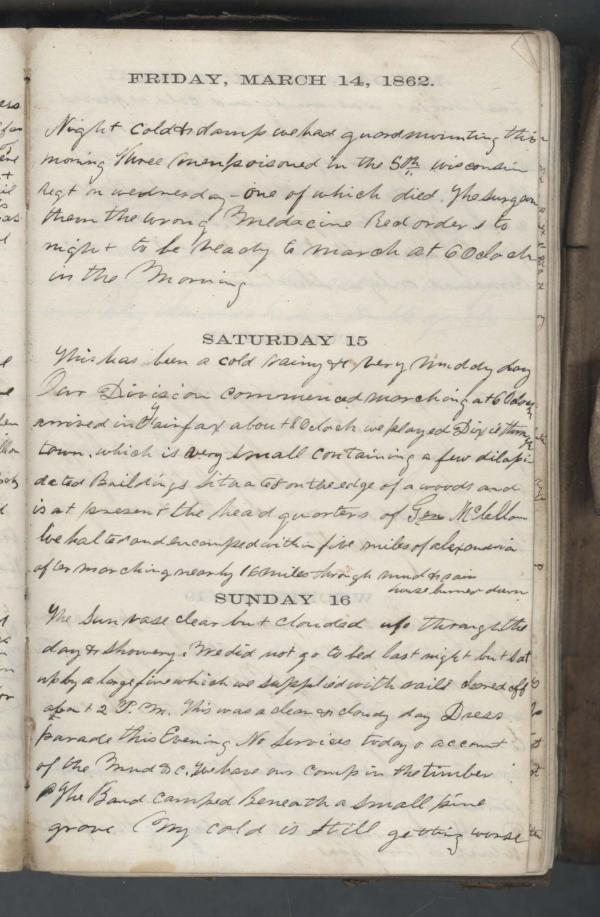 FRIDAY, MARCH 14, 1862.
Night cold & damp we had guardmounting this
morning three men poisoned in the 5th wisconsin
Regt on wednesday - one of which died. The surgeon
them the wrong Medacine Red orders to
night to be ready to march at 6 Oclock
in the Morning
SATURDAY 15
This has been a cold rainy & very muddy day
Our Division commenced marching at 6 Oclock
arrived in Fairfax about 8 Oclock we played Dixie through
town. which is very small containing a few dilapi
dated Buildings situated on the edge of a woods and
is at present the head quarters of Gen McLellan
We halted and encamped within five miles of alexandria
after marching nearly 16 miles through mud & rain
house burnt down
SUNDAY 16
The Sun rase clear but clouded up through the
day & showery. We did not go to bed last night but sat
up by a large fire which we supplied with rails cleared off
about 2 P.M. This was a clear & cloudy day Dress
parade this Evening No Services today o account
of the Mud &c, We have our camp in the timber
The Band camped Beneath a small pine
grove My cold is still getting worse